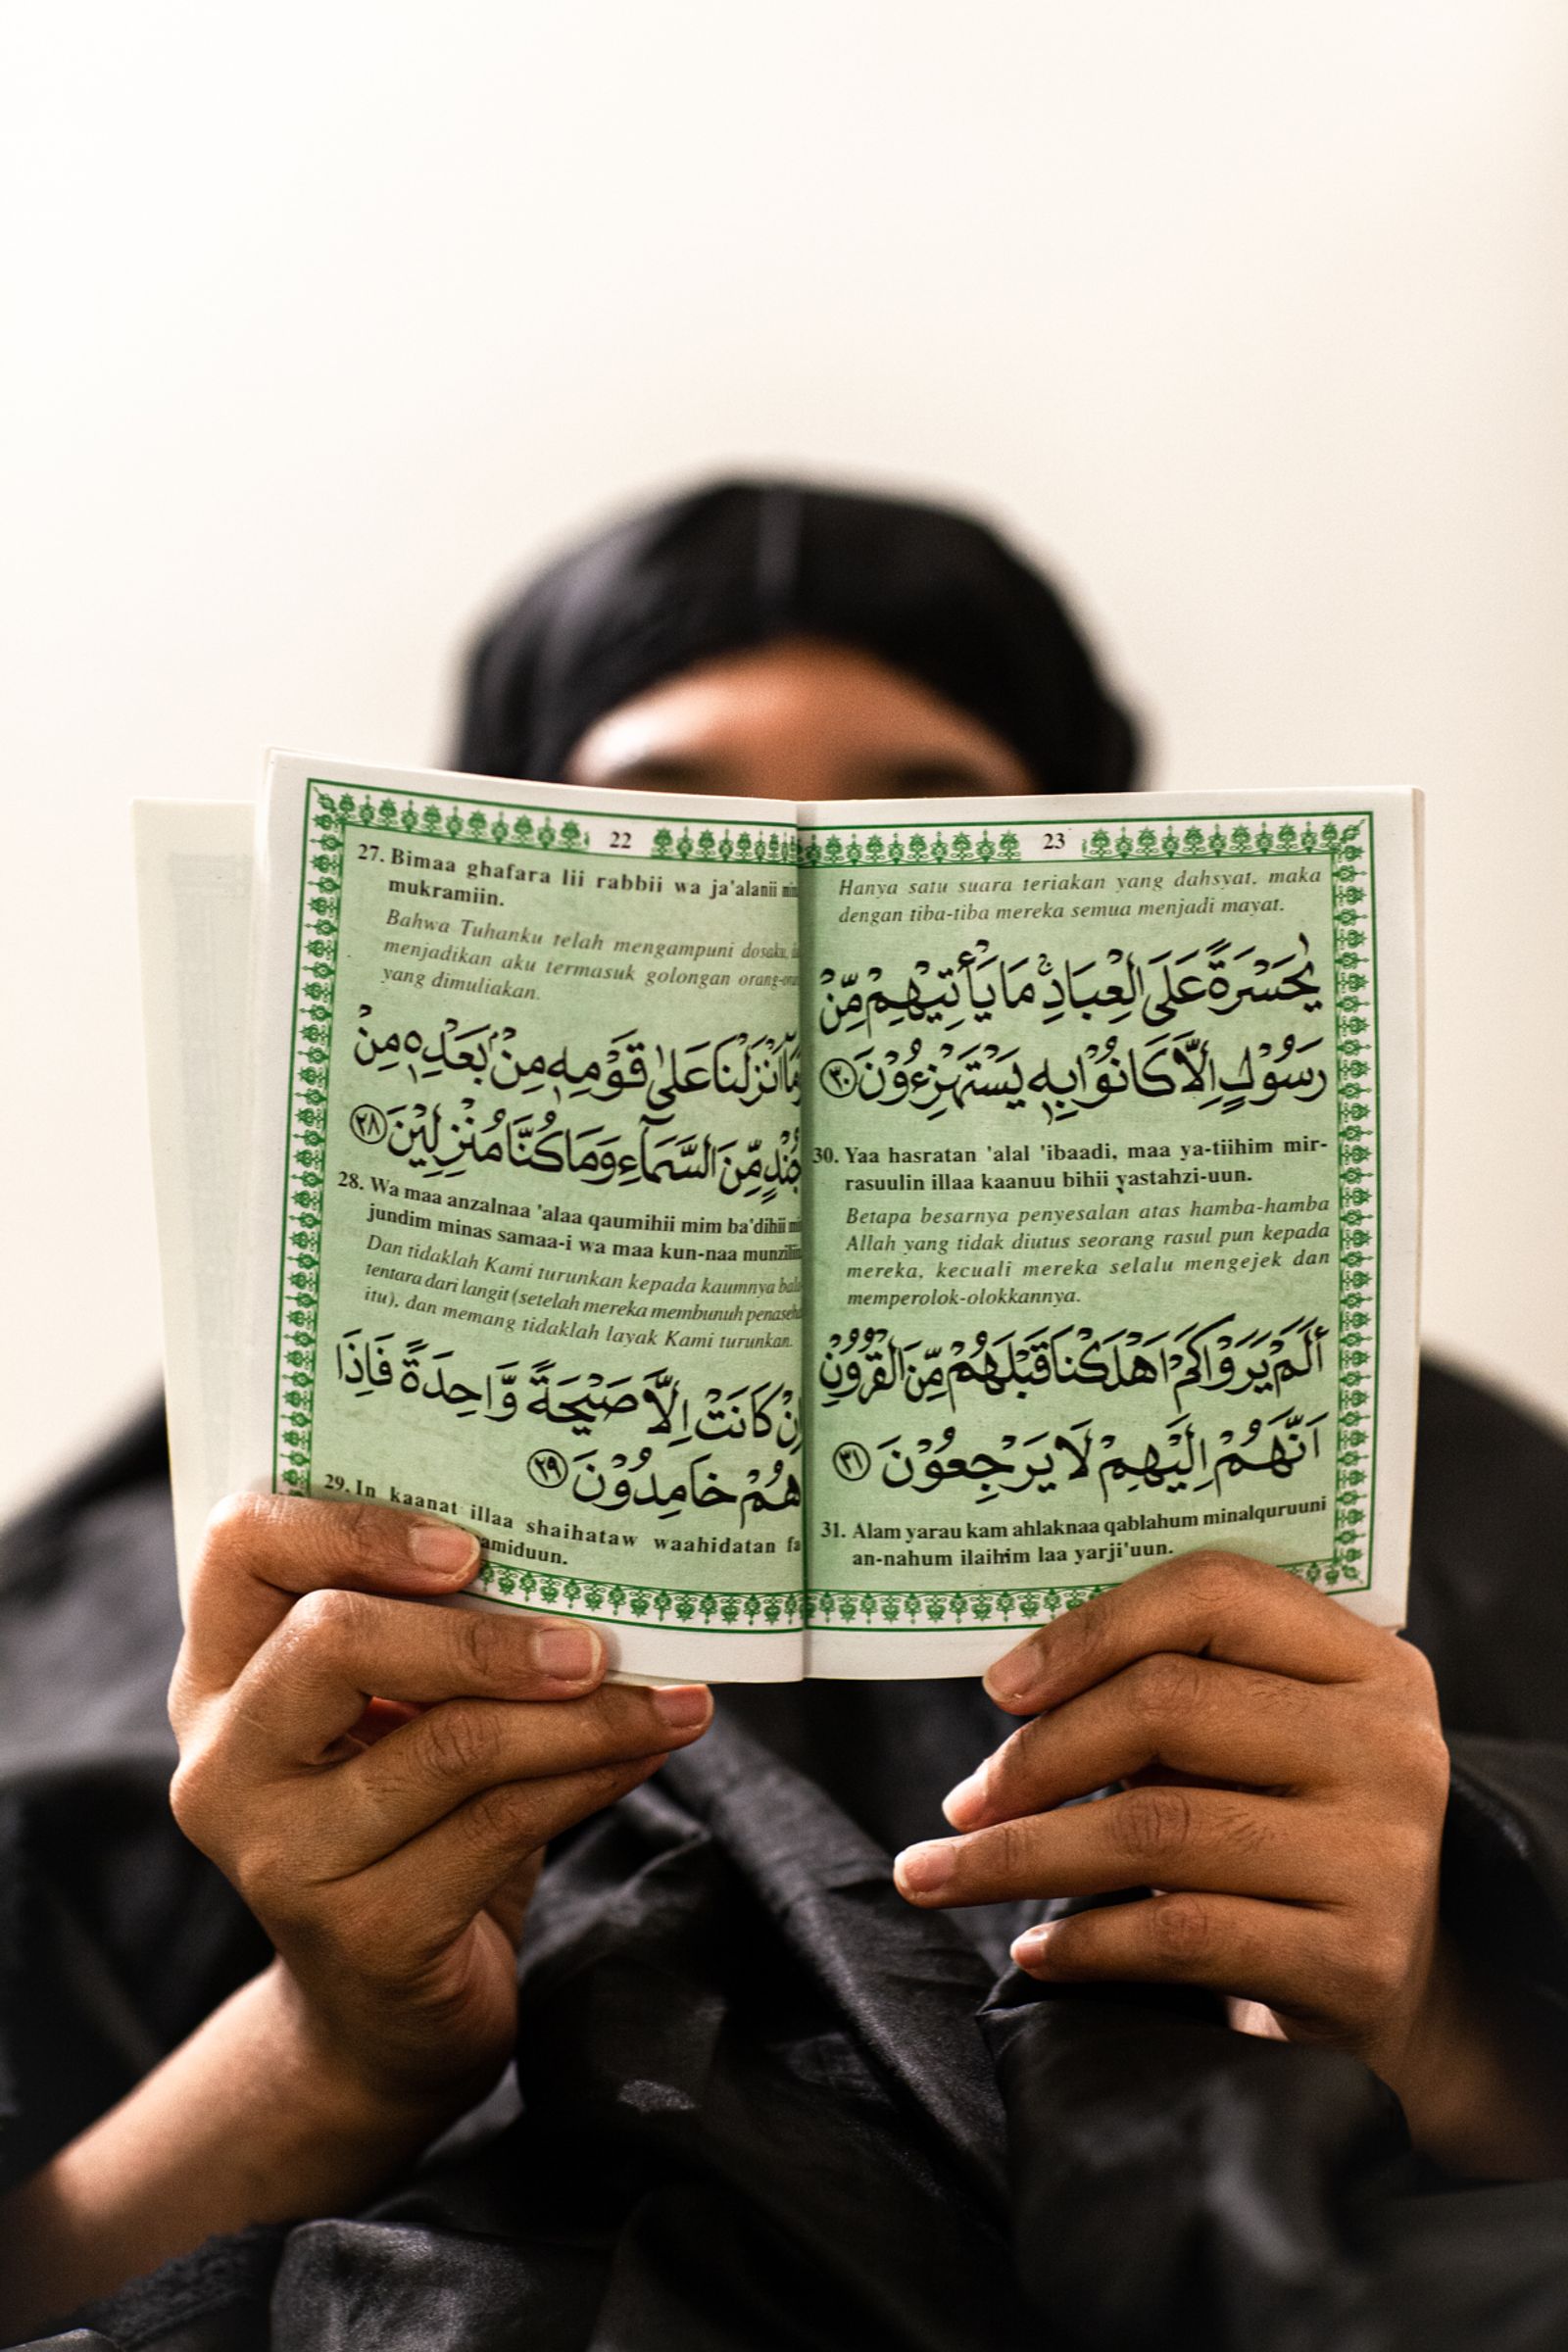 22
27. Bimaa ghafara lii rabbii wa ja'alanii
mukramiin.
Bahwa Tuhanku telah mengampuni dosaku,
menjadikan aku termasuk golongan
yang dimuliakan.
مَآ اَنْزَلْنَا عَلٰى قَوْمِهٖ مِنْۢ بَعْدِهٖ مِنْ
جُنْدٍ مِّنَ السَّمَآءِ وَمَا كُنَّا مُنْزِلِيْنَ ﴿٢٨﴾
28. Wa maa anzalnaa 'alaa qaumihii mim ba'dihii
jundim minas samaa-i wa maa kun-naa
Dan tidaklah Kami turunkan kepada kaumnya
tentara dari langit (setelah mereka membunuh
itu), dan memang tidaklah layak Kami turunkan.
اِنْ كَانَتْ اِلَّا صَيْحَةً وَّاحِدَةً فَاِذَا
هُمْ خَامِدُوْنَ ﴿٢٩﴾
29. In kaanat illaa shaihataw waahidatan
amiduun.
23
Hanya satu suara teriakan yang dahsyat, maka
dengan tiba-tiba mereka semua menjadi mayat.
يٰحَسْرَةً عَلَى الْعِبَادِۚ مَا يَأْتِيْهِمْ مِّنْ
رَسُوْلٍ اِلَّا كَانُوْا بِهٖ يَسْتَهْزِءُوْنَ ﴿٣٠﴾
30. Yaa hasratan 'alal 'ibaadi, maa ya-tiihim mir-
rasuulin illaa kaanuu bihii yastahzi-uun.
Betapa besarnya penyesalan atas hamba-hamba
Allah yang tidak diutus seorang rasul pun kepada
mereka, kecuali mereka selalu mengejek dan
memperolok-olokkannya.
أَلَمْ يَرَوْا كَمْ اَهْلَكْنَا قَبْلَهُمْ مِّنَ الْقُرُوْنِ
اَنَّهُمْ اِلَيْهِمْ لَا يَرْجِعُوْنَ ﴿٣١﴾
31. Alam yarau kam ahlaknaa qablahum minalquruuni
an-nahum ilaihim laa yarji'uun.